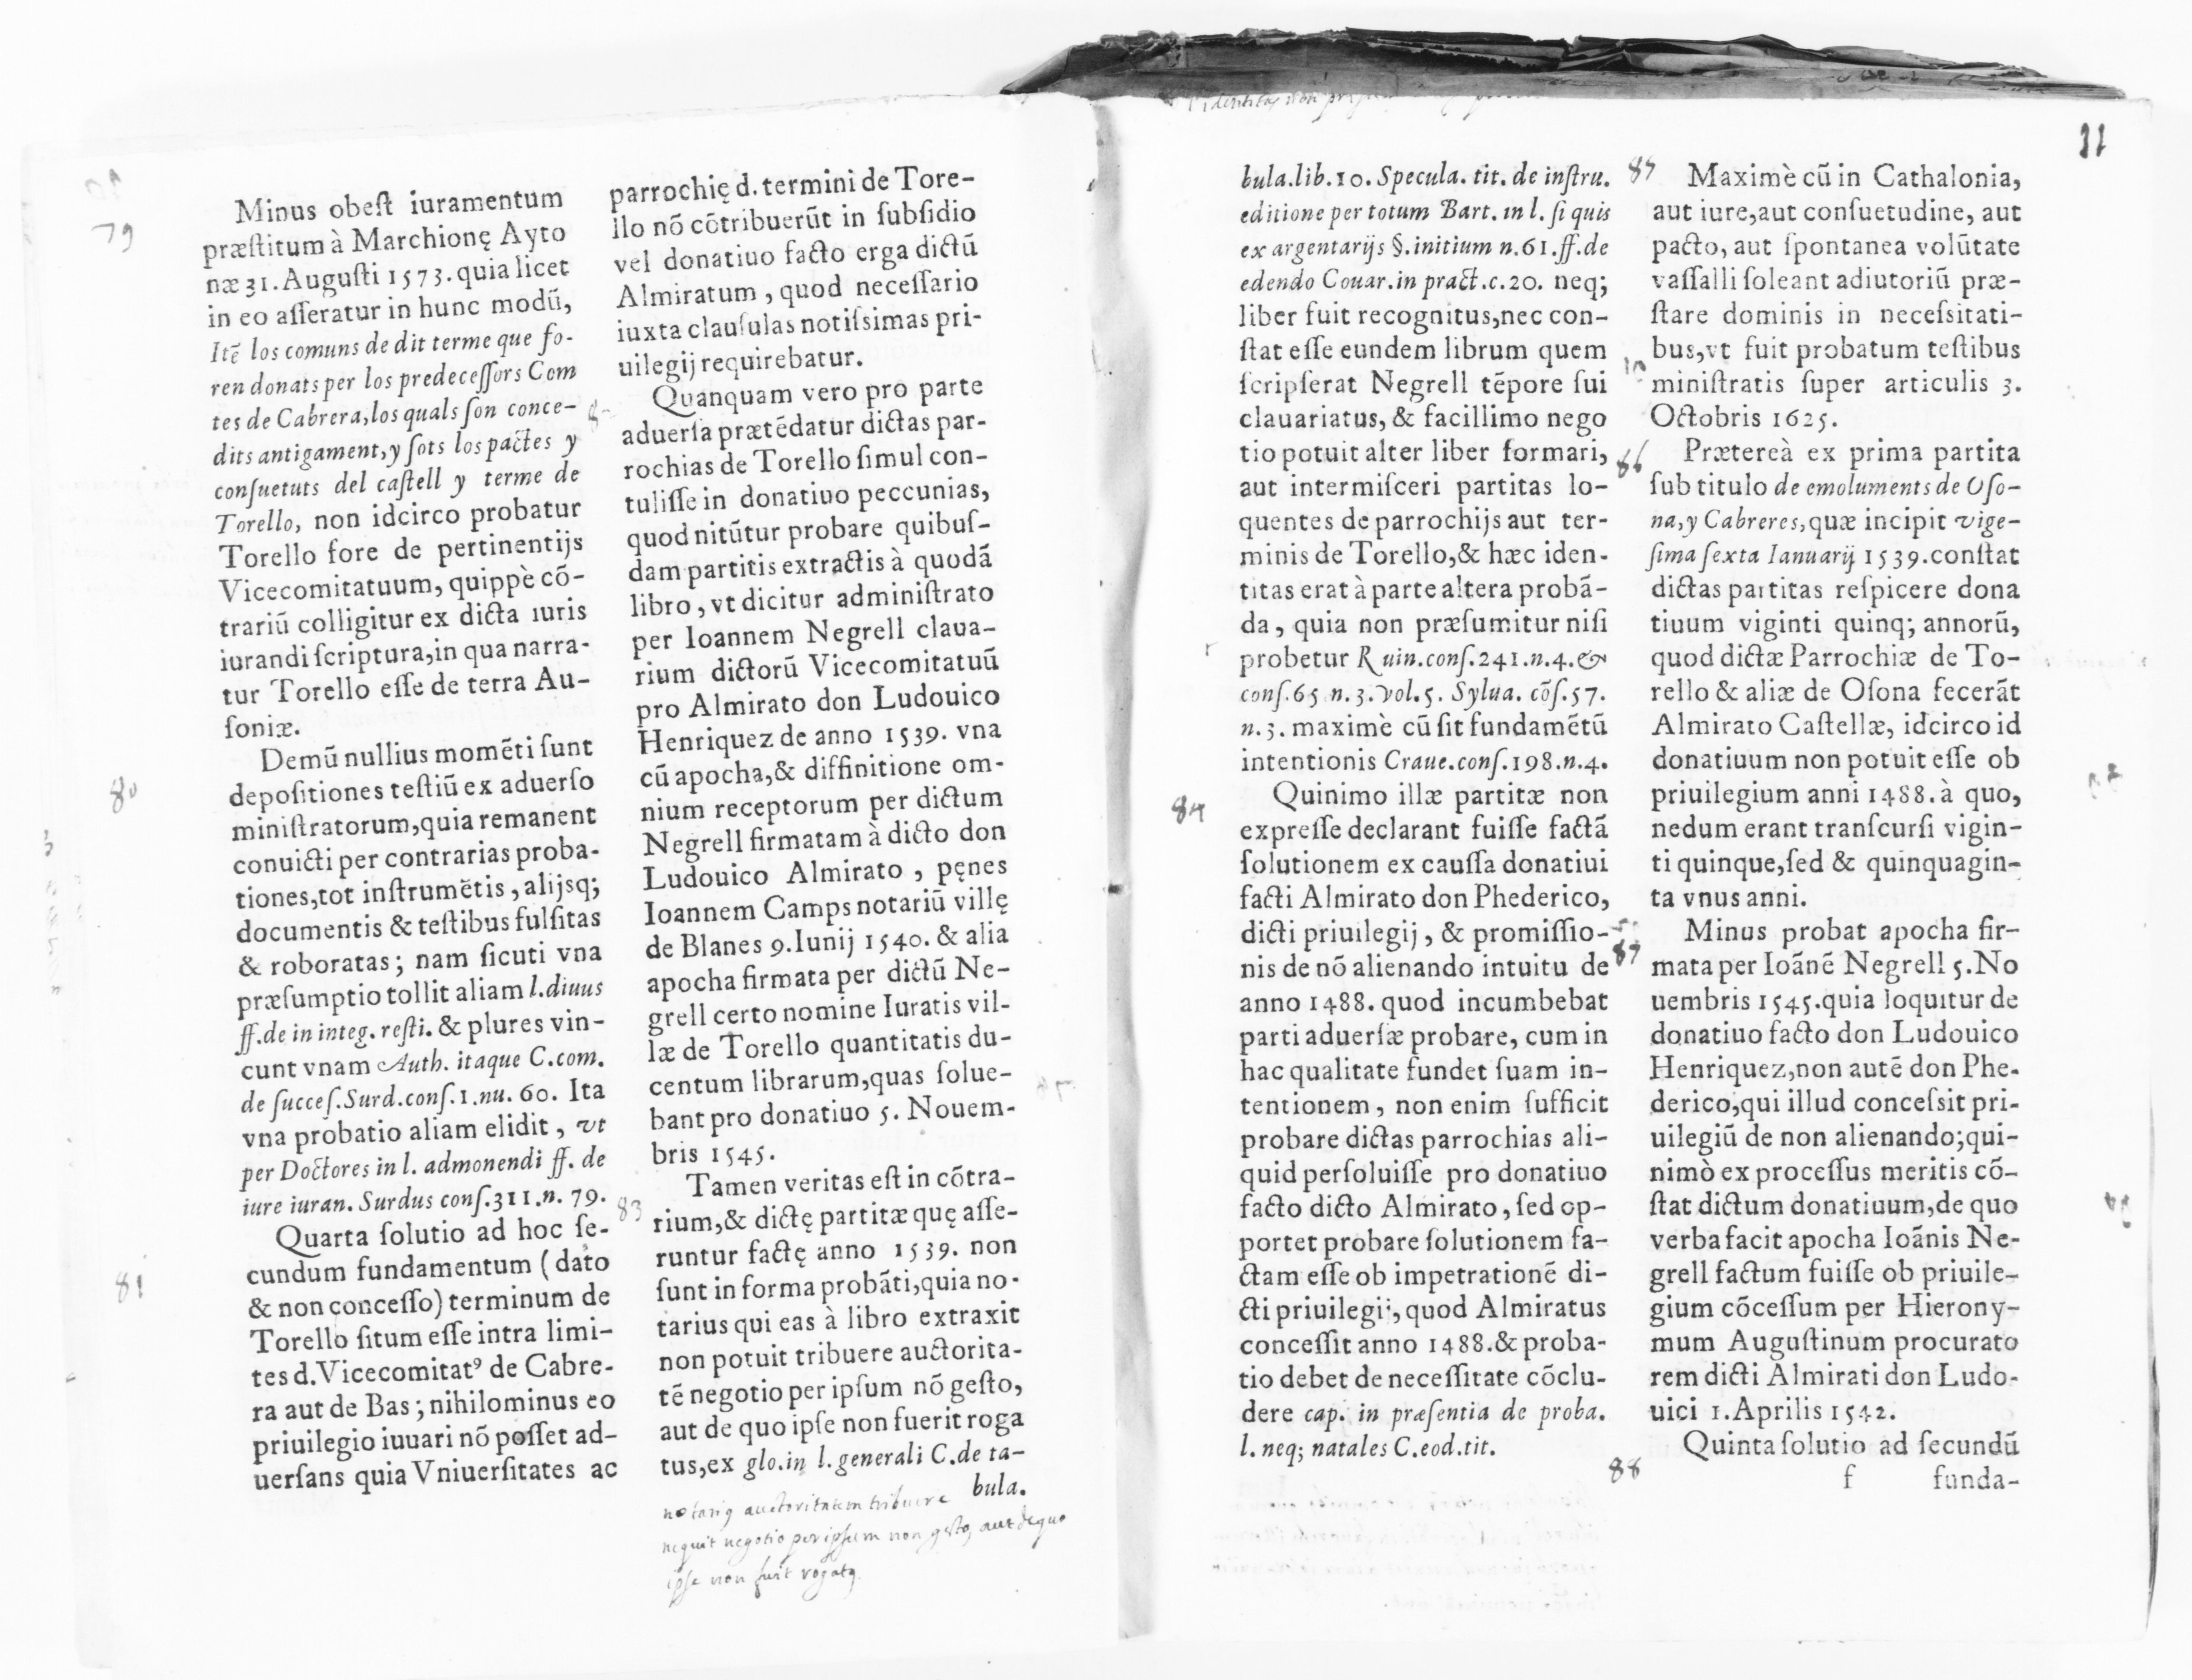 79
Minus obest iuramentum
præstitum à Marchionę Ayto
næ 31. Augusti 1573. quia licet
in eo asseratur in hunc modũ,
Itẽ los comuns de dit terme que fo-
ren donats per los predecessors Com
tes de Cabrera, los quals son conce-
dits antigament, y sots los pactes y
consuetuts del castell y terme de
Torello, non idcirco probatur
Torello fore de pertinentijs
Vicecomitatuum, quippè cõ-
trariũ colligitur ex dicta iuris
iurandi scriptura, in qua narra-
tur Torello esse de terra Au-
soniæ.
80
Demũ nullius momẽti sunt
depositiones testiũ ex aduerso
ministratorum, quia remanent
conuicti per contrarias proba-
tiones, tot instrumẽtis, alijsq;
documentis & testibus fulsitas
& roboratas; nam sicuti vna
præsumptio tollit aliam l. diuus
ff. de in integ. resti. & plures vin-
cunt vnam Auth. itaque C. com.
de succes. Surd. cons. 1. nu. 60. Ita
vna probatio aliam elidit, vt
per Doctores in l. admonendi ff. de
iure iuran. Surdus cons. 311. n. 79.
81
Quarta solutio ad hoc se-
cundum fundamentum (dato
& non concesso) terminum de
Torello situm esse intra limi-
tes d. Vicecomitatꝰ de Cabre-
ra aut de Bas; nihilominus eo
priuilegio iuuari nõ posset ad-
uersans quia Vniuersitates ac
parrochię d. termini de Tore-
llo nõ cõtribuerũt in subsidio
vel donatiuo facto erga dictũ
Almiratum, quod necessario
iuxta clausulas notissimas pri-
uilegij requirebatur.
Quanquam vero pro parte
aduersa prætẽdatur dictas par-
rochias de Torello simul con-
tulisse in donatiuo peccunias,
quod nitũtur probare quibus-
dam partitis extractis à quodã
libro, vt dicitur administrato
per Ioannem Negrell claua-
rium dictorũ Vicecomitatuũ
pro Almirato don Ludouico
Henriquez de anno 1539. vna
cũ apocha, & diffinitione om-
nium receptorum per dictum
Negrell firmatam à dicto don
Ludouico Almirato, pęnes
Ioannem Camps notariũ villę
de Blanes 9. Iunij 1540. & alia
apocha firmata per dictũ Ne-
grell certo nomine Iuratis vil-
læ de Torello quantitatis du-
centum librarum, quas solue-
bant pro donatiuo 5. Nouem-
bris 1545.
83
Tamen veritas est in cõtra-
rium, & dictę partitæ quę asse-
runtur factę anno 1539. non
sunt in forma probãti, quia no-
tarius qui eas à libro extraxit
non potuit tribuere auctorita-
tẽ negotio per ipsum nõ gesto,
aut de quo ipse non fuerit roga
tus, ex glo. in l. generali C. de ta-
bula.
notariꝰ auctoritatem tribuere
nequit negotio per ipsum non gesto, aut de quo
ipse non fuit rogatꝰ
11
bula. lib. 10. Specula. tit. de instru.
editione per totum Bart. in l. si quis
ex argentarijs §. initium n. 61. ff. de
edendo Couar. in pract. c. 20. neq;
liber fuit recognitus, nec con-
stat esse eundem librum quem
scripserat Negrell tẽpore sui
clauariatus, & facillimo nego
tio potuit alter liber formari,
aut intermisceri partitas lo-
quentes de parrochijs aut ter-
minis de Torello, & hæc iden-
titas erat à parte altera probã-
da, quia non præsumitur nisi
probetur Ruin. cons. 241. n. 4. &
cons. 65 n. 3. vol. 5. Sylua. cõs. 57.
n. 3. maximè cũ sit fundamẽtũ
intentionis Craue. cons. 198. n. 4.
84
Quinimo illæ partitæ non
expresse declarant fuisse factã
solutionem ex caussa donatiui
facti Almirato don Phederico,
dicti priuilegij, & promissio-
nis de nõ alienando intuitu de
anno 1488. quod incumbebat
parti aduersæ probare, cum in
hac qualitate fundet suam in-
tentionem, non enim sufficit
probare dictas parrochias ali-
quid persoluisse pro donatiuo
facto dicto Almirato, sed op-
portet probare solutionem fa-
ctam esse ob impetrationẽ di-
cti priuilegij, quod Almiratus
concessit anno 1488. & proba-
tio debet de necessitate cõclu-
dere cap. in præsentia de proba.
l. neq; natales C. eod. tit.
Maximè cũ in Cathalonia,
aut iure, aut consuetudine, aut
pacto, aut spontanea volũtate
vassalli soleant adiutoriũ præ-
stare dominis in necessitati-
bus, vt fuit probatum testibus
ministratis super articulis 3.
Octobris 1625.
86
Prætereà ex prima partita
sub titulo de emoluments de Oso-
na, y Cabreres, quæ incipit vige-
sima sexta Ianuarij 1539. constat
dictas partitas respicere dona
tiuum viginti quinq; annorũ,
quod dictæ Parrochiæ de To-
rello & aliæ de Osona fecerãt
Almirato Castellæ, idcirco id
donatiuum non potuit esse ob
priuilegium anni 1488. à quo,
nedum erant transcursi vigin-
ti quinque, sed & quinquagin-
ta vnus anni.
87
Minus probat apocha fir-
mata per Ioãnẽ Negrell 5. No
uembris 1545. quia loquitur de
donatiuo facto don Ludouico
Henriquez, non autẽ don Phe-
derico, qui illud concessit pri-
uilegiũ de non alienando; qui-
nimò ex processus meritis cõ-
stat dictum donatiuum, de quo
verba facit apocha Ioãnis Ne-
grell factum fuisse ob priuile-
gium cõcessum per Hierony-
mum Augustinum procurato
rem dicti Almirati don Ludo-
uici 1. Aprilis 1542.
88
Quinta solutio ad secundũ
f funda-